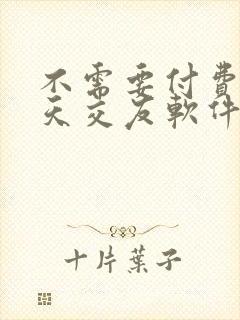 不需要付費
天交友軟件
十片葉子